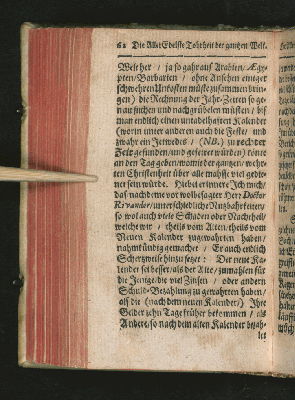 62 Die Aller Edelste Tohrheit der gantzen Welt.
Welt her / ja so gahr auß Arabien / Ægy-
pten/Barbarien / ohne Ansehen einiger
schwehren Unkosten müste zusammen brin-
gen) die Rechnung der Jahr-Zeiten so ge-
nau suchen und nachgrübelen müsten / biß
man endlich einen untadelhaften Kalender
(worin unter anderen auch die Feste / und
zwahr ein Jetwedes / (NB.) zu rechter
Zeit gefunden/und gefeiret würden) könte
an den Tag geben/womit der gantzen/wehr-
ten Christenheit über alle mahsse viel gedie-
net sein würde. Hiebei erinnere Ich mich/
das nach deme vor wolbesagter Herr Doctor
unterschiedliche Nutzbahrkeiten/
so wol auch viele Schaden oder Nachtheil/
welche wir / theils vom Alten, theils vom
Neuen Kalender zugewahrten haben/
nahmkündig gemachet / Er auch endlich
Schertzweise hinzu setze : Der neue Ka-
lender sei besser/als der Alte/zumahlen für
die Jenige/die viel Zinsen / oder andern
Schuld-Bezahlung zu gewahrten haben/
alß die (nach dem neuen Kalender/) Ihre
Gelder zehn Tage früher bekommen / als
Andere/so nach dem alten Kalender bezah-
let